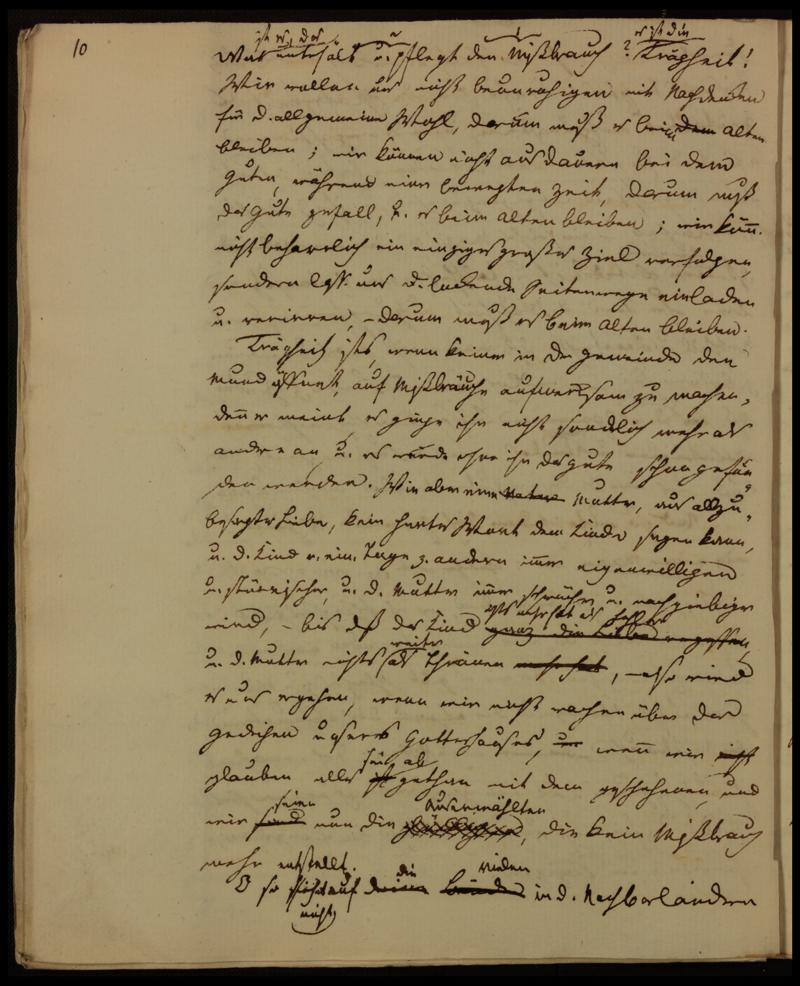 10
ist es, das er ist die
Was unterhält u. pflegt den Mißbrauch? Trägheit!
Wir wollen uns nicht beunruhigen mit Nachdenken
für d. allgemeine Wohl, darum muß es beim dem alten
bleiben; wir können nicht ausdauern bei dem
Guten, während einer bewegten Zeit, darum muß
das Gute zerfall, u. es beim alten bleiben; wir könn.
nicht beharrlich ein einziges großes Ziel verfolgen,
sondern laß. uns d. lockende Seitenwege einladen
u. verirren, - darum muß es beim alten bleiben.
Trägheit ists, wenn keiner in der Gemeinde den
Mund öffnet, auf Mißbräuche aufmerksam zu machen,
denn er meint, es ginge ihn nicht sonderlich mehr als
andere an, u. es würde ohne ihn das Gute schon gefun
den werden. Wie aber eine Mutter, aus allzu
besorgter Liebe, kein hartes Wort dem Kinde sagen kann,
u. d. Kind v. ein. Tage z. andern immer eigenwilliger
u. stürmischer, u. d. Mutter immer schwächer u. nachgiebiger
wird, - bis daß das Kind
weiter
u. d. Mutter nichts als Thränen mehr hat, - also wird
es uns ergehen, wenn wir nicht wachen über das
Gedeihen unseres Gotteshauses, u. wenn wir nicht
glauben alles sei abgethan mit dem geschehenen, und
seien Auserwählten
wir sind nun die, die kein Mißbrauch
mehr entstellt.
die
O so sehet auf in d. Nachbarländern
nicht